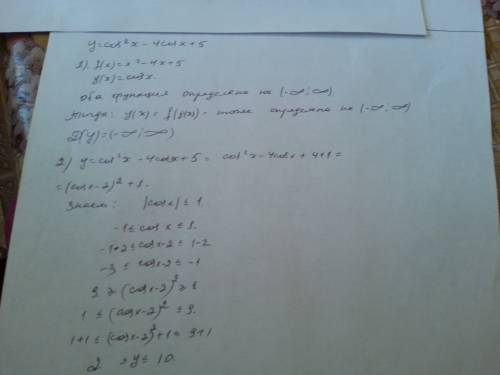 y=cos²x-4cosx+5
1). f(x)=x²-4x+5
g(x)=cosx.
Оба функция определена на (-∞;∞)
Тогда: y(x)=f(g(x)) - тоже определена на (-∞;∞)
D(y)=(-∞;∞)
2) y=cos²x-4cosx+5= cos²x-4cosx+4+1=
=(cosx-2)²+1.
Знаем: |cosx|≤1.
-1≤cosx≤1.
-1+2≤cosx-2≤1-2
-3≤cosx-2≤-1
9≥(cosx-2)²≥1
1≤(cosx-2)²≤9.
1+1≤(cosx-2)²+1≤9+1
2≤y≤10.